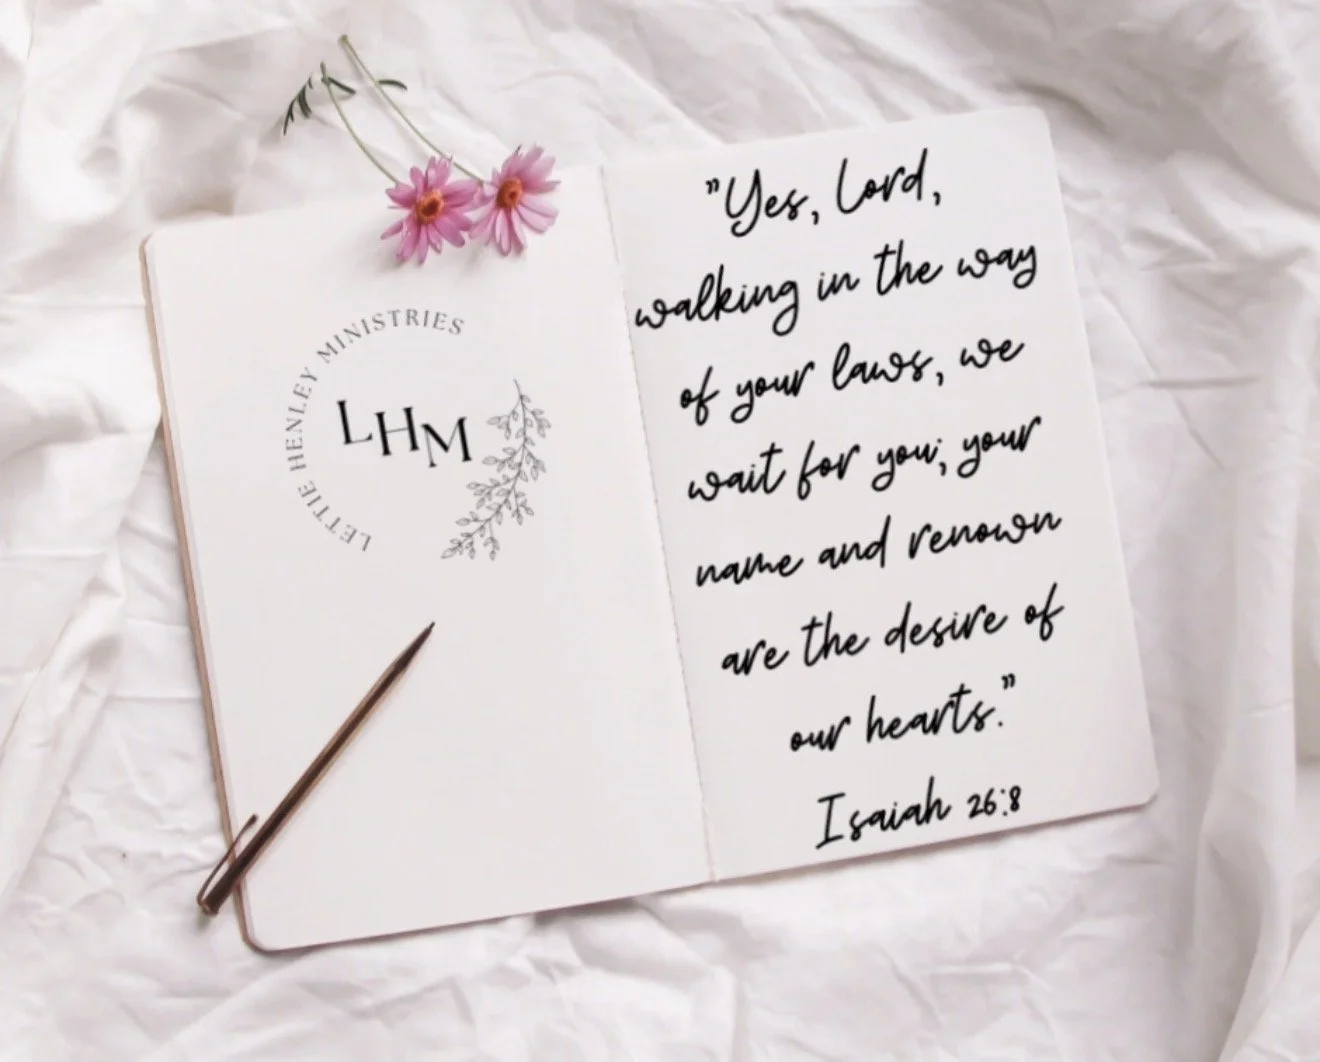 LETTIE HENLEY MINISTRIES
LHM
"Yes, Lord,
walking in the way
of your laws, we
wait for you; your
name and renown
are the desire of
our hearts."
Isaiah 26:8